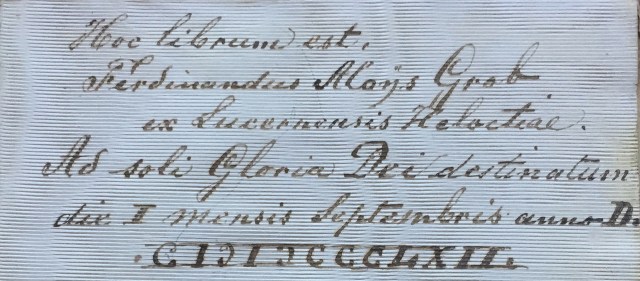 Hoc librum est.
Ferdinandus Aloys Grob
ex Lucernensis Helvetiae.
Ad soli Gloria Dei destinatum
die I mensis Septembris anno D.
CIƆIƆCCCLXII.